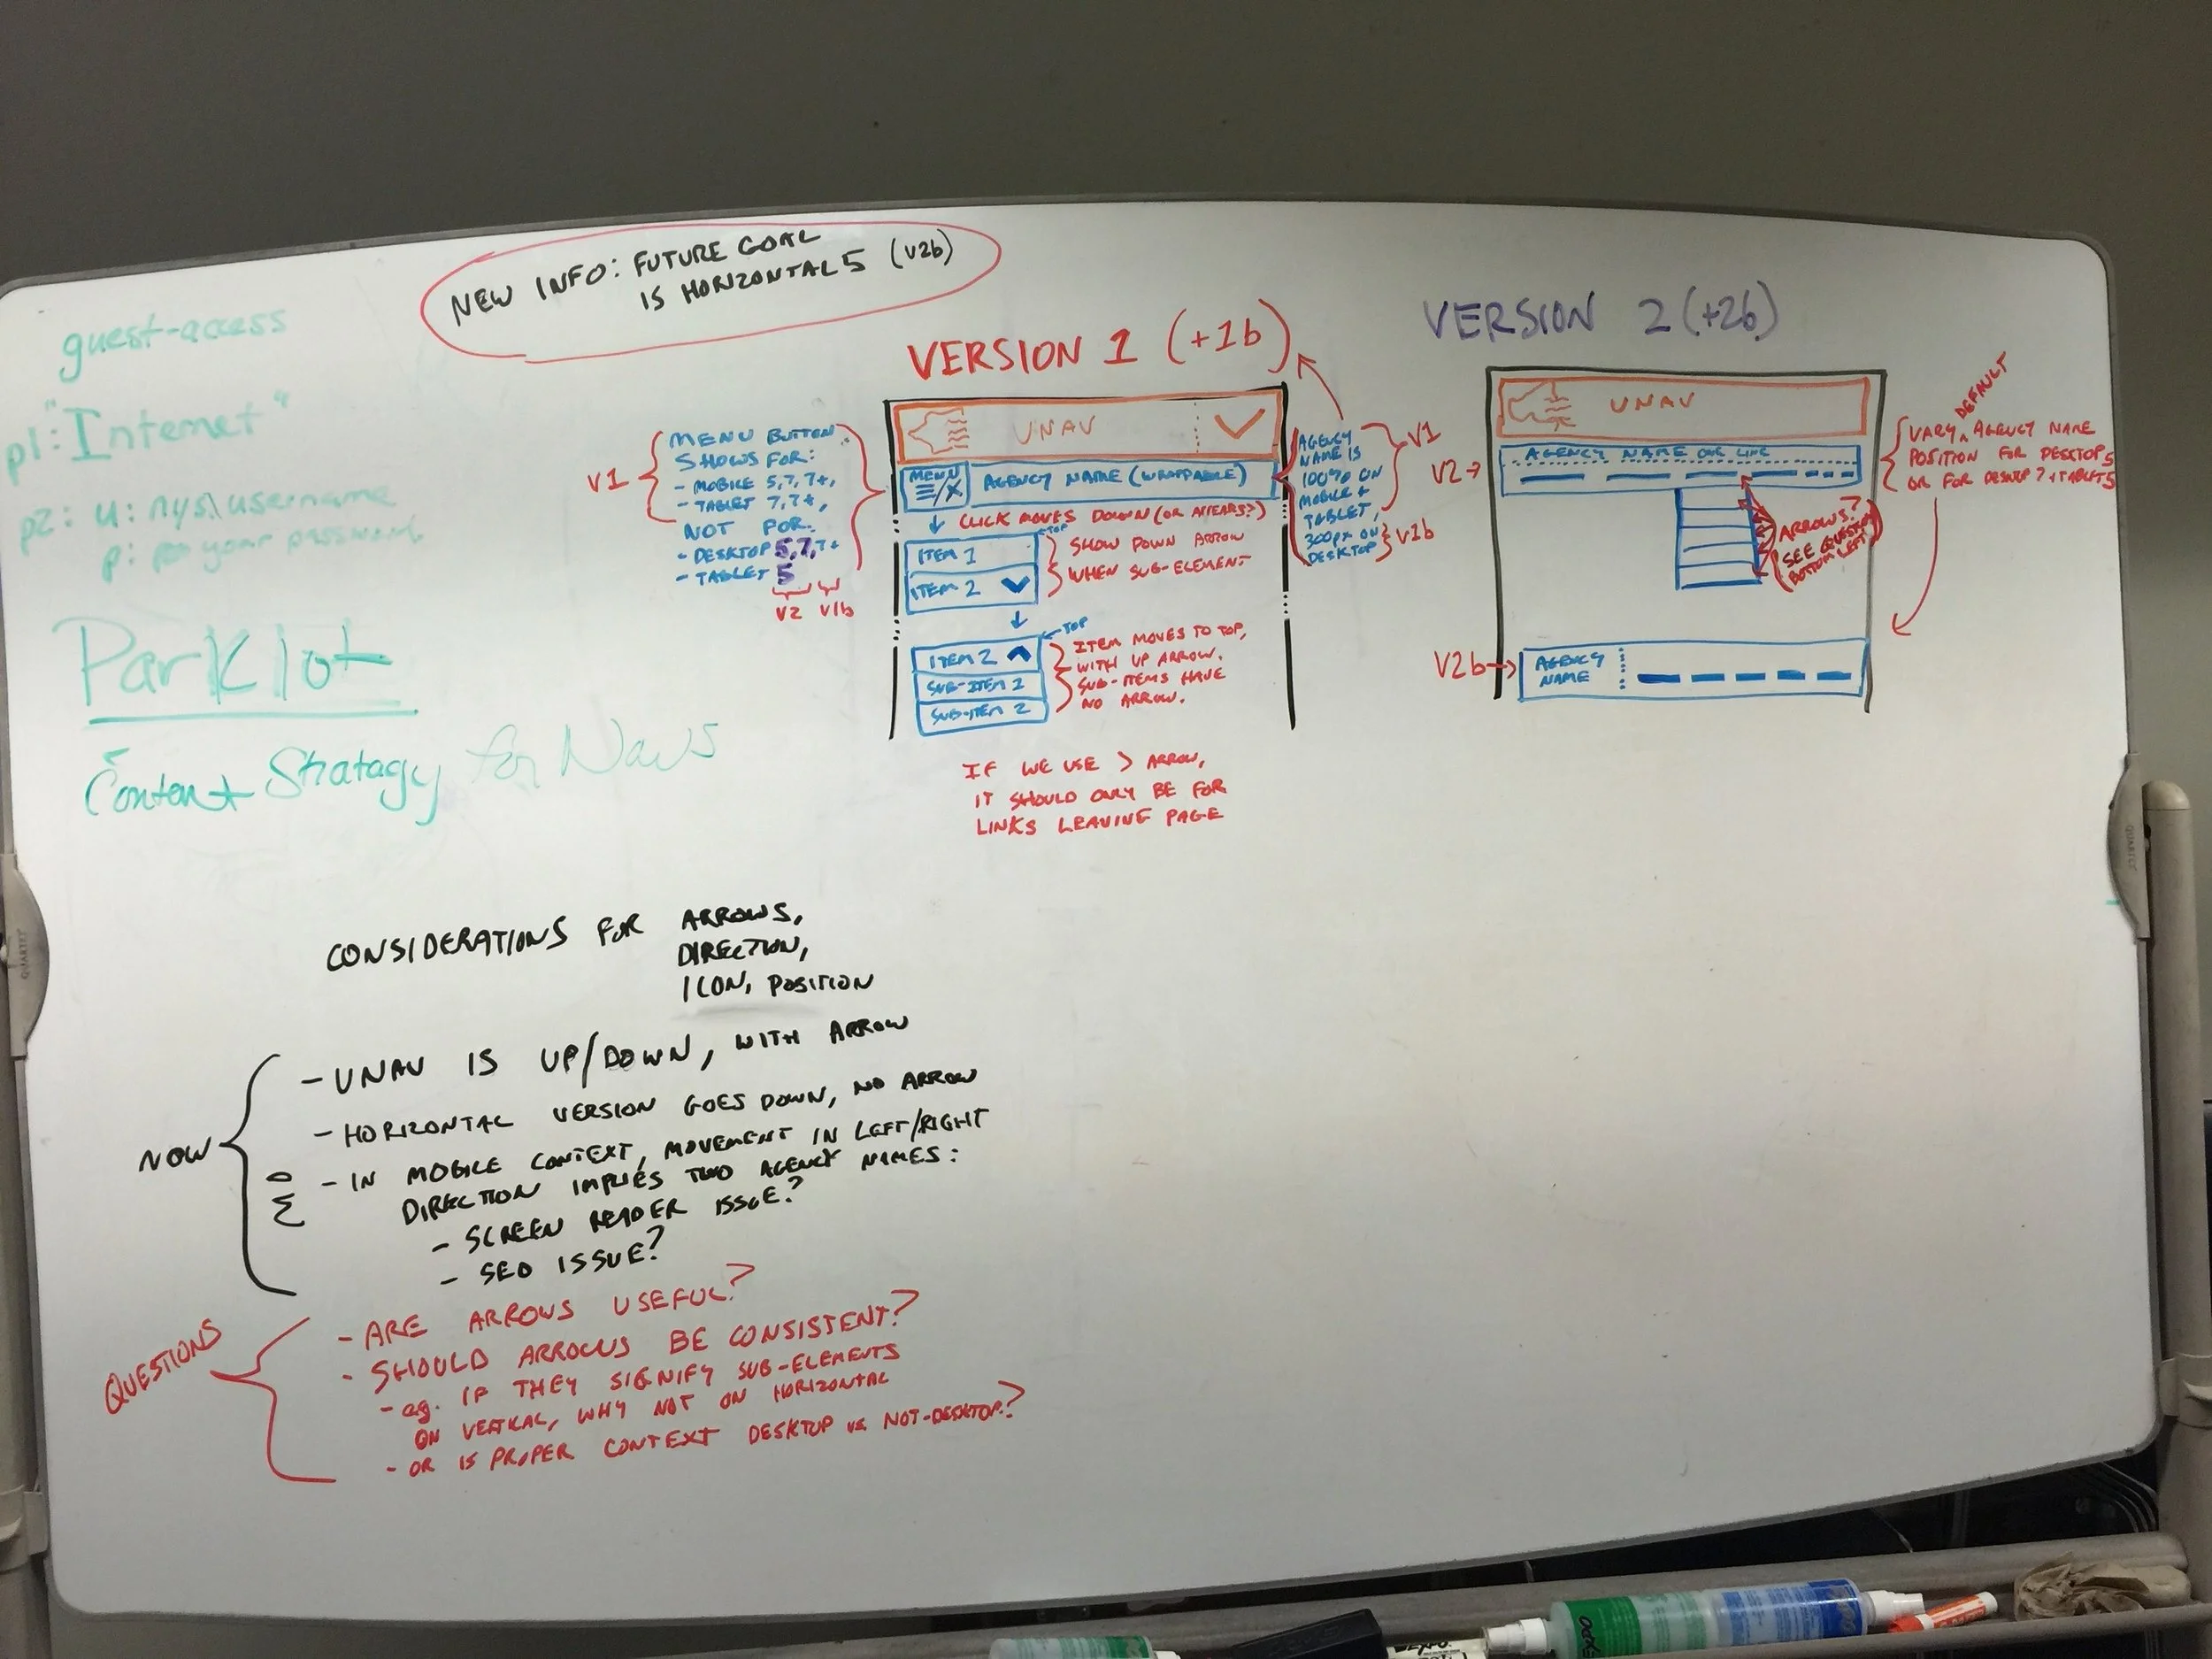 NEW INFO: FUTURE GOAL
IS HORIZONTAL 5 (V2b)
guest-access
p1: "Internet"
p2: u: nys\username
p: your password
Park lot
Content Stratagy for Navs
VERSION 1 (+1b)
V1
MENU BUTTON
SHOWS FOR:
- MOBILE 5, 7, 7+,
- TABLET 7, 7+,
NOT FOR:
- DESKTOP 5, 7, 7+
- TABLET 5
V2 V1b
UNAV
MENU
AGENCY NAME (WRAPPABLE)
CLICK MOVES DOWN (OR APPEARS?)
TOP
ITEM 1
ITEM 2
SHOW DOWN ARROW
WHEN SUB-ELEMENT
TOP
ITEM 2
SUB-ITEM 1
SUB-ITEM 2
ITEM MOVES TO TOP,
WITH UP ARROW.
SUB-ITEMS HAVE
NO ARROW.
IF WE USE > ARROW,
IT SHOULD ONLY BE FOR
LINKS LEAVING PAGE
AGENCY
NAME IS
100% ON
MOBILE +
TABLET,
300px ON
DESKTOP
V1
V1b
VERSION 2 (+2b)
UNAV
V2
AGENCY NAME ONE LINE
ARROWS?
SEE QUESTIONS
BOTTOM LEFT
DEFAULT
VARY ^ AGENCY NAME
POSITION FOR DESKTOP 5
OR FOR DESKTOP 7 + TABLET 5
V2b
AGENCY
NAME
CONSIDERATIONS FOR ARROWS,
DIRECTION,
ICON, POSITION
NOW
- UNAV IS UP/DOWN, WITH ARROW
- HORIZONTAL VERSION GOES DOWN, NO ARROW
- IN MOBILE CONTEXT, MOVEMENT IN LEFT/RIGHT
DIRECTION IMPLIES TWO AGENCY NAMES:
- SCREEN READER ISSUE?
- SEO ISSUE?
QUESTIONS
- ARE ARROWS USEFUL?
- SHOULD ARROWS BE CONSISTENT?
- eg. IF THEY SIGNIFY SUB-ELEMENTS
ON VERTICAL, WHY NOT ON HORIZONTAL
- OR IS PROPER CONTEXT DESKTOP vs. NOT-DESKTOP?
QUARTET
QUARTET
EXPO